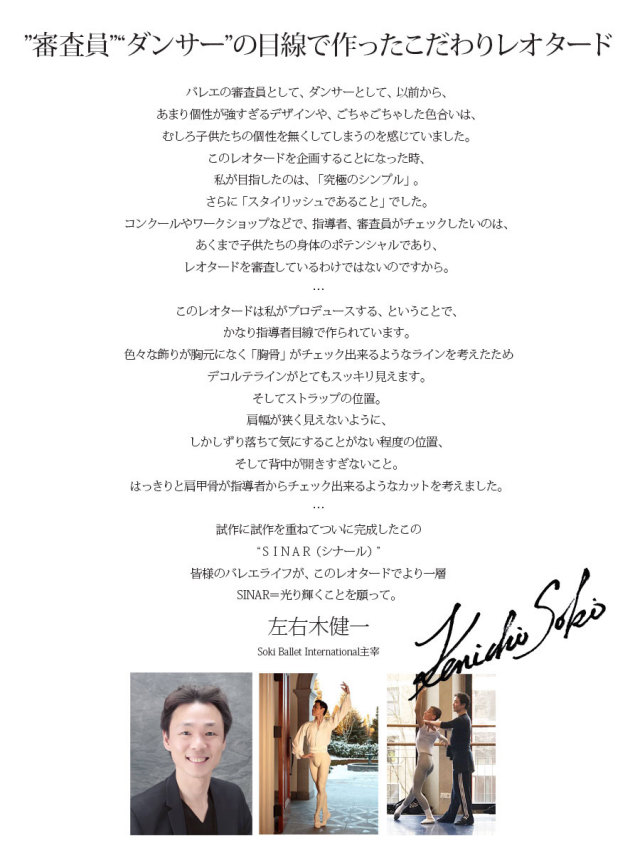 ”審査員”“ダンサー”の目線で作ったこだわりレオタード
バレエの審査員として、ダンサーとして、以前から、
あまり個性が強すぎるデザインや、ごちゃごちゃした色合いは、
むしろ子供たちの個性を無くしてしまうのを感じていました。
このレオタードを企画することになった時、
私が目指したのは、「究極のシンプル」。
さらに「スタイリッシュであること」でした。
コンクールやワークショップなどで、指導者、審査員がチェックしたいのは、
あくまで子供たちの身体のポテンシャルであり、
レオタードを審査しているわけではないのですから。
…
このレオタードは私がプロデュースする、ということで、
かなり指導者目線で作られています。
色々な飾りが胸元になく「胸骨」がチェック出来るようなラインを考えたため
デコルテラインがとてもスッキリ見えます。
そしてストラップの位置。
肩幅が狭く見えないように、
しかしずり落ちて気にすることがない程度の位置、
そして背中が開きすぎないこと。
はっきりと肩甲骨が指導者からチェック出来るようなカットを考えました。
…
試作に試作を重ねてついに完成したこの
“ＳＩＮＡＲ（シナール）”
皆様のバレエライフが、このレオタードでより一層
SINAR＝光り輝くことを願って。
左右木健一
Soki Ballet International主宰
Kenichi Soki